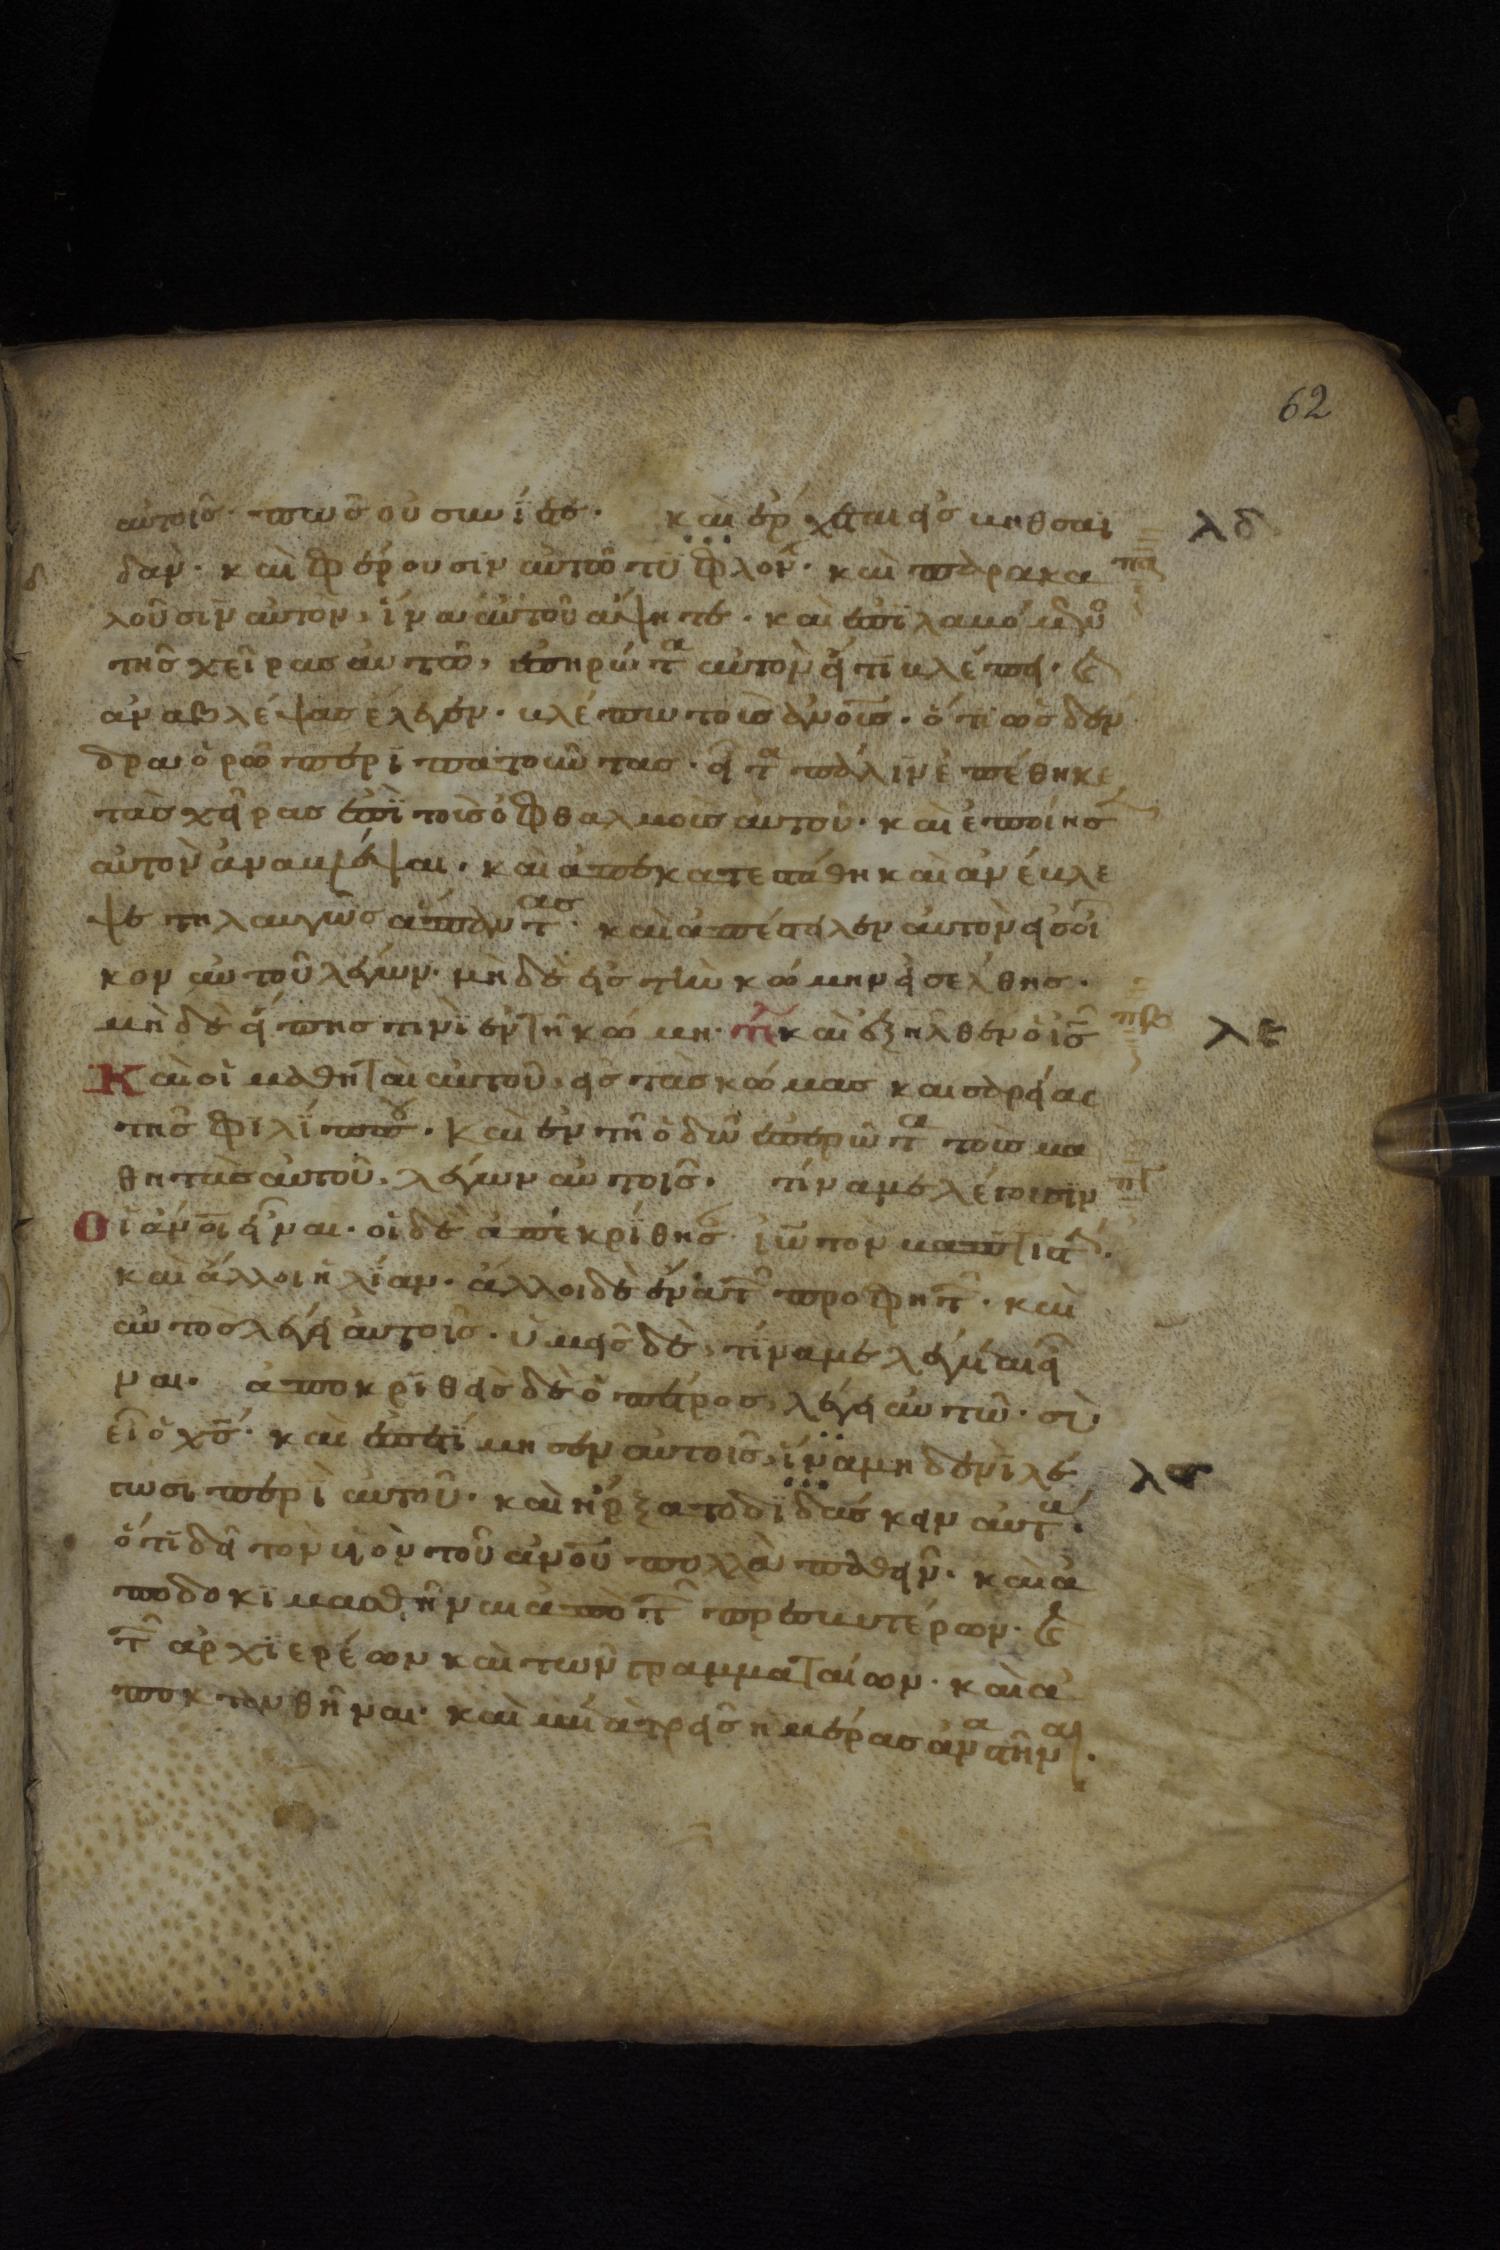 62
αὐτοῖς· πῶς οὐ συνίετε· καὶ ἔρχεται εἰς βηθσαϊ
λδ
δάν· καὶ φέρουσιν αὐτῶ τυφλόν· καὶ παρακα
πα
λοῦσιν αὐτὸν, ἵνα αὐτοῦ ἅψητε· καὶ ἐπιλαβόμενος
τῆς χεῖρας αὐτοῦ, ἐπηρώτα αὐτὸν εἴ τι βλέπει· καὶ
ἀναβλέψας ἔλεγεν· βλέπω τοὺς ἀνους· ὅτι ὡς δέν
δρα ὁρῶ περιπατοῦντας· εἶτα πάλιν ἐπέθηκε
τὰς χεῖρας ἐπὶ τοὺς ὀφθαλμοὺς αὐτοῦ· καὶ ἐποίησεν
αὐτὸν ἀναβλέψαι· καὶ ἀπεκατεστάθη καὶ ἀνέβλε
ψε τηλαυγῶς ἅπαντας· καὶ ἀπέστειλεν αὐτὸν εἰς οἶ
κον αὐτοῦ λέγων· μὴ δὲ εἰς τὴν κώμην εἰσέλθης·
μὴ δὲ εἴπης τινὶ ἐν τῆ κώμη· καὶ ἐξῆλθεν ὁ ις
πβ
λε
Καὶ οἱ μαθηταὶ αὐτοῦ, εἰς τὰς κώμας καισαρείας
τῆς φιλίππου· καὶ ἐν τῆ ὁδῶ ἐπερώτα τοὺς μα
θητὰς αὐτοῦ, λέγων αὐτοῖς· τίνα με λέγουσιν
Οἱ ἄνοι εἶναι· οἱ δὲ ἀπεκρίθησαν· ἰω τὸν βαπτιστήν·
καὶ ἄλλοι ἠλίαν· ἄλλοι δὲ ἕνα τῶν προφητῶν· καὶ
αὐτὸς λέγει αὐτοῖς· ὑμεῖς δὲ, τίνα με λέγετε εἶ
ναι· ἀποκριθεὶς δὲ ὁ πέτρος, λέγει αὐτῶ· σὺ
εἶ ὁ χς· καὶ ἐπετίμησεν αὐτοῖς, ἵνα μηδενὶ λέ
λς
γωσι περὶ αὐτοῦ· καὶ ἤρξατο διδάσκειν αὐτούς·
ὅτι δεῖ τὸν υἱὸν τοῦ ἀνου πολλὰ παθεῖν· καὶ ἀ
ποδοκιμασθῆναι ἀπὸ τῶν πρεσβυτέρων· καὶ
τῶν ἀρχιερέων καὶ τῶν γραμματαίων· καὶ ἀ
ποκτανθῆναι· καὶ μετὰ τρεῖς ἡμέρας ἀναστῆναι·